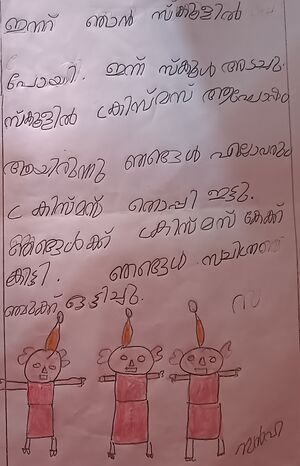 ഇന്ന് ഞാൻ സ്കൂളിൽ
പോയി. ഇന്ന് സ്കൂൾ അടച്ചു.
സ്കൂളിൽ ക്രിസ്മസ് ആഘോഷം
ആയിരുന്നു ഞങ്ങൾ എല്ലാവരും
ക്രിസ്മസ് തൊപ്പി ഇട്ടു.
ഞങ്ങൾക്ക് ക്രിസ്മസ് കേക്ക്
കിട്ടി. ഞങ്ങൾ
ഒട്ടിച്ചു.